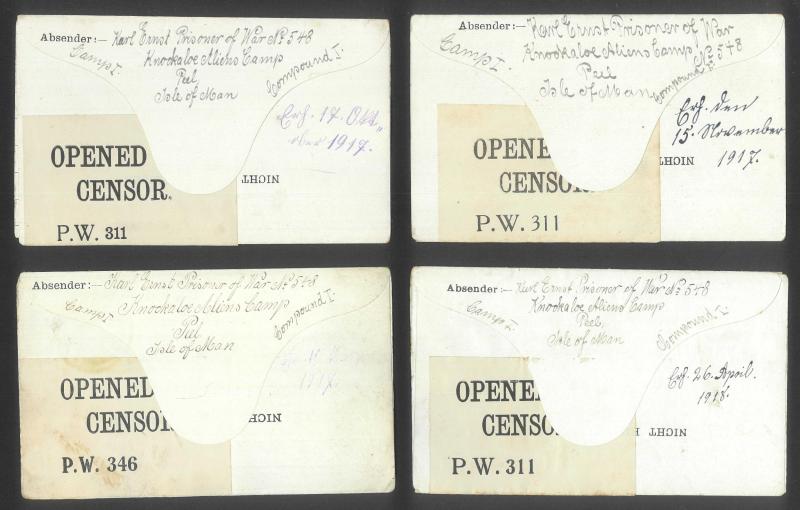 Absender:— Karl Ernst Prisoner of War No 548
Knockaloe Aliens Camp
Peel
Isle of Man
Camp I.
Compound I.
Erh. 17. Okt„
ober 1917.
OPENED
CENSOR.
P.W. 311
NICHT
Absender:— Karl Ernst Prisoner of War
Knockaloe Aliens Camp, No 548
Peel
Isle of Man
Camp I.
Compound I.
Erh. den
15. November
1917.
OPENE
CENSOR.
P.W. 311
NICHT
Absender:— Karl Ernst Prisoner of War No 548
Knockaloe Aliens Camp
Peel
Isle of Man
Camp I.
Compound I.
1917.
OPENED
CENSOR
P.W. 346
NICHT
Absender:— Karl Ernst Prisoner of War No 548
Knockaloe Aliens Camp
Peel,
Isle of Man
Camp I.
Compound I.
Erh. 26. April.
1918.
OPENE
CENSO
P.W. 311
NICHT